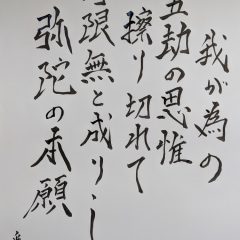 我が為の
五劫の思惟
擦り切れて
限無と成りにし
弥陀の本願